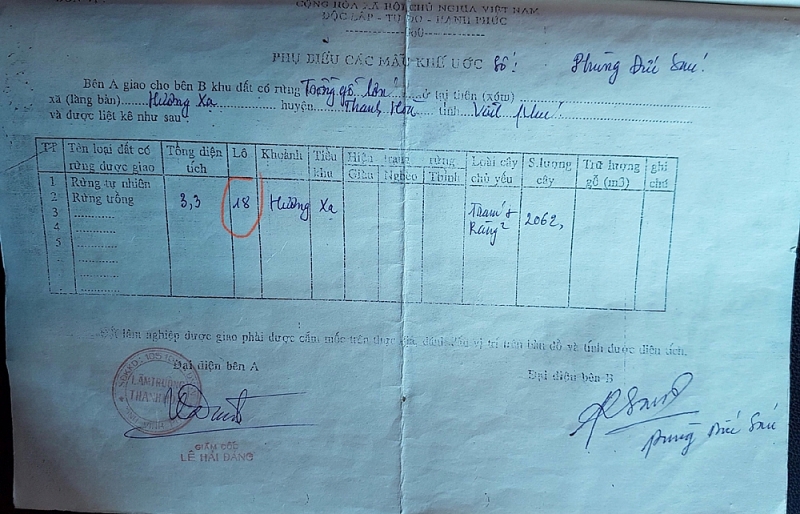 CỘNG HÒA XÃ HỘI CHỦ NGHĨA VIỆT NAM
ĐỘC LẬP - TỰ DO - HẠNH PHÚC
PHỤ BIỂU CÁC MẪU KHẾ ƯỚC Số: Phùng Đức Sáu
Bên A giao cho bên B khu đất có rừng Trồng gỗ lớn ở tại thôn (xóm)
xã (làng bản) Hương Xạ huyện Thanh Hoà tỉnh Vĩnh Phú
và được liệt kê như sau
TT Tên loại đất có rừng được giao Tổng diện tích Lô Khoảnh Tiểu khu Hiện trạng rừng Giàu Nghèo T.bình Loài cây chủ yếu S.lượng cây Trữ lượng gỗ (m3) ghi chú
1 Rừng tự nhiên
2 Rừng trồng 3,3 18 Hương Xạ 2062,
3 ..............
4 ..............
5 ..............
Đất lâm nghiệp được giao phải được cắm mốc trên thực địa, đánh dấu vị trí trên bản đồ và tính được diện tích.
Đại diện bên A
Đại diện bên B
LÂM TRƯỜNG
GIÁM ĐỐC
LÊ HẢI ĐĂNG
Phùng Đức Sáu